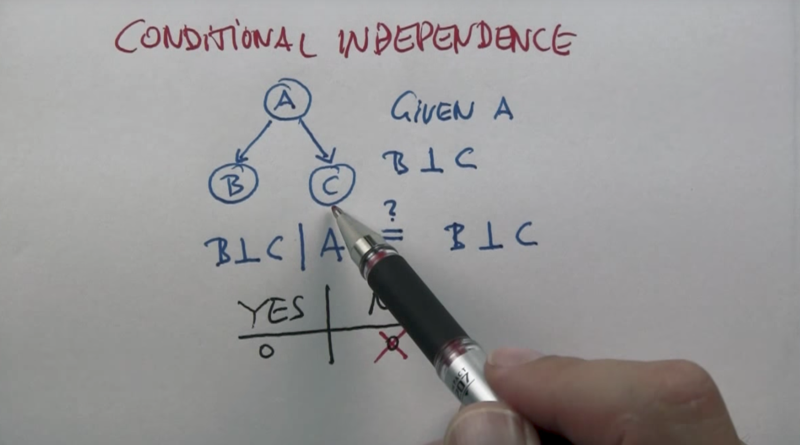 CONDITIONAL INDEPENDENCE
A
GIVEN A
B C
B ⊥ C
B⊥C | A ?= B ⊥ C
YES
O O